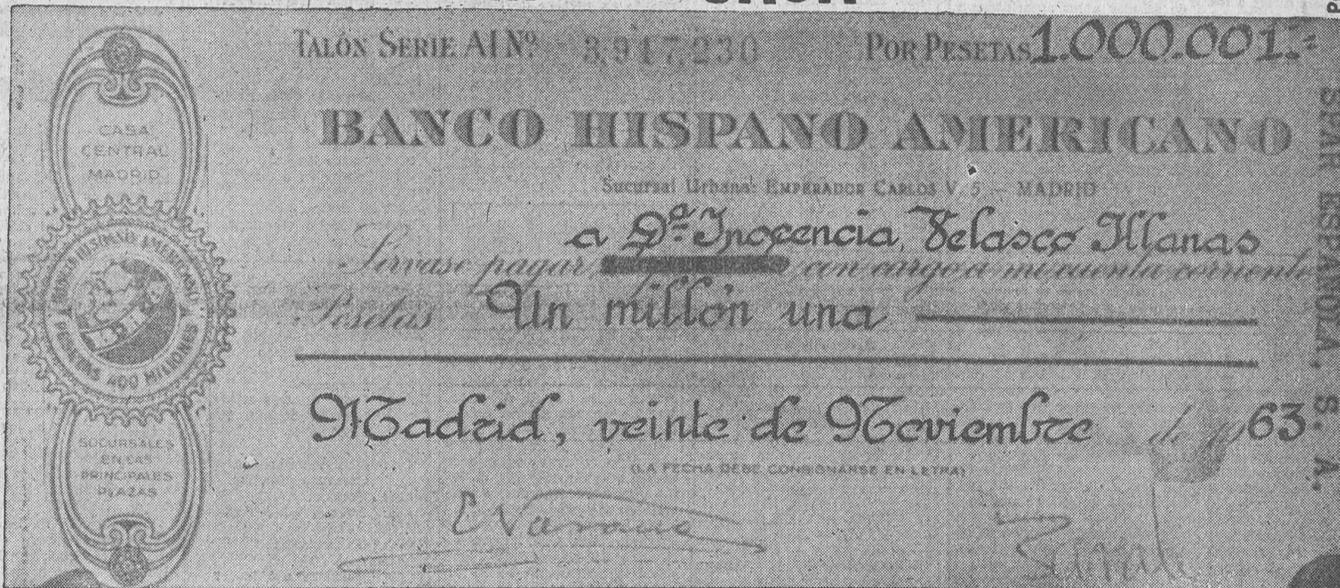 TALÓN SERIE AI Nº 3,947,230 POR PESETAS 1.000.001.=
BANCO HISPANO AMERICANO
Sucursal Urbana: EMPERADOR CARLOS V, 5 - MADRID
a Dª Inocencia Velasco Illanas
Sírvase pagar con cargo a mi cuenta corriente
Pesetas Un millón una
Madrid, veinte de Noviembre de 1963
(LA FECHA DEBE CONSIGNARSE EN LETRA)
CASA
CENTRAL
MADRID
BANCO HISPANO AMERICANO
PESETAS 400 MILLONES
SUCURSALES
EN LAS
PRINCIPALES
PLAZAS
SPAR ESPAÑOLA, S. A.